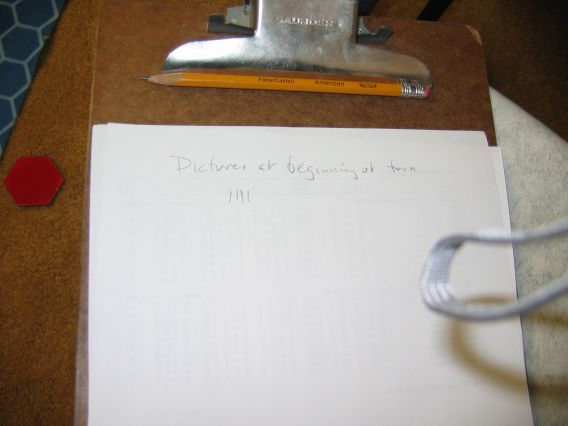 SAUNDERS
FaberCastell American
Pictures at beginning of turn
||||